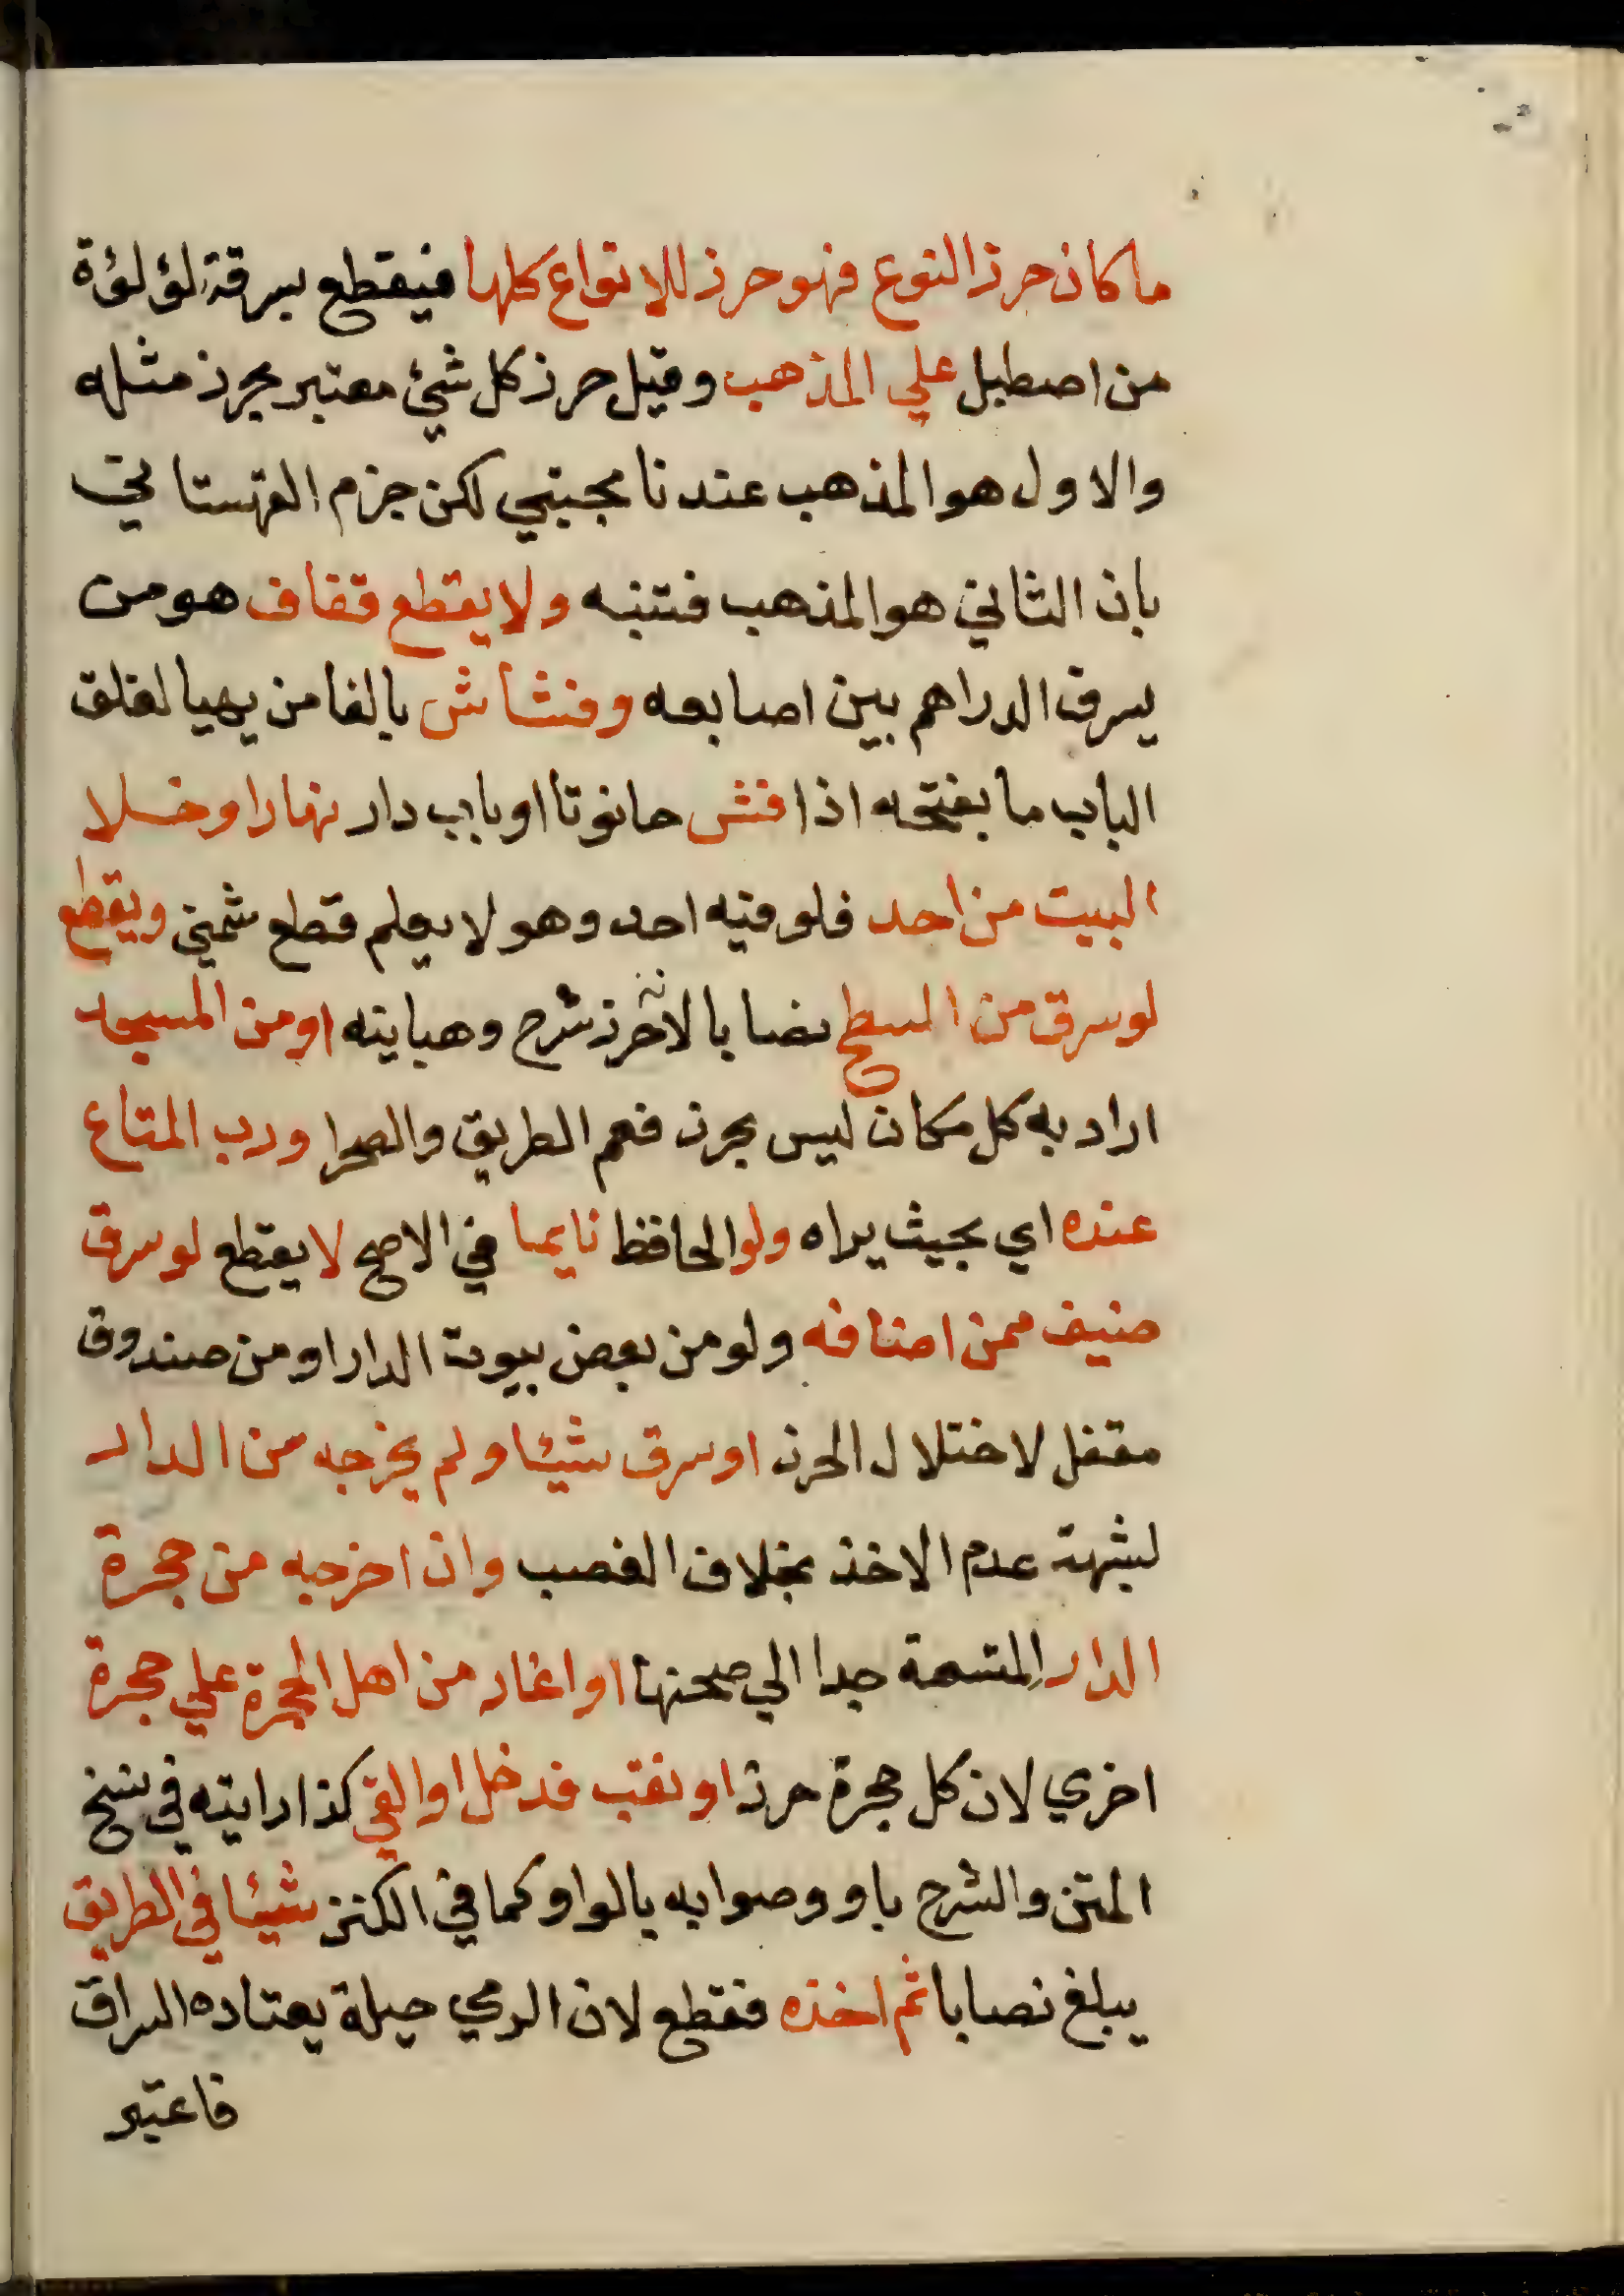 ما كان حرز النوع فهو حرز للانواع كلها فيقطع بسرقة لؤلؤة
من اصطبل علي المذهب وقيل حرز كل شئ معتبر بحرز مثله
والاول هو المذهب عندنا مجتبي لكن جزم القهستاني
بان الثاني هو المذهب فتنبه ولا يقطع قفاف هو من
يسرق الدراهم بين اصابعه وفشاش بالفا من يهيا لغلق
الباب ما يفتحه اذا فش حانوتا او باب دار نهارا وخلا
البيت من احد فلو فيه احد وهو لا يعلم قطع شمني ويقطع
لو سرق من السطح نصابا لانه حرز شرح وهبانيه او من المسجد
اراد به كل مكان ليس بحرز فعم الطريق والصحرا ورب المتاع
عنده اي بحيث يراه ولو الحافظ نايما في الاصح لا يقطع لو سرق
ضيف ممن اضافه ولو من بعض بيوت الدار او من صندوق
مقفل لاختلال الحرز او سرق شيئا ولم يخرجه من الدار
لشبهة عدم الاخذ بخلاف الغصب وان اخرجه من حجرة
الدار المتسعة جدا الي صحنها او اغار من اهل الحجرة علي حجرة
اخري لان كل حجرة حرز او نقب فدخل او القي كذا رايته في نسخ
المتن والشرح باو وصوابه بالواو كما في الكنز شيئا في الطريق
يبلغ نصابا ثم اخذه فقطع لان الرمي حيلة يعتاده السراق
فاعتبر